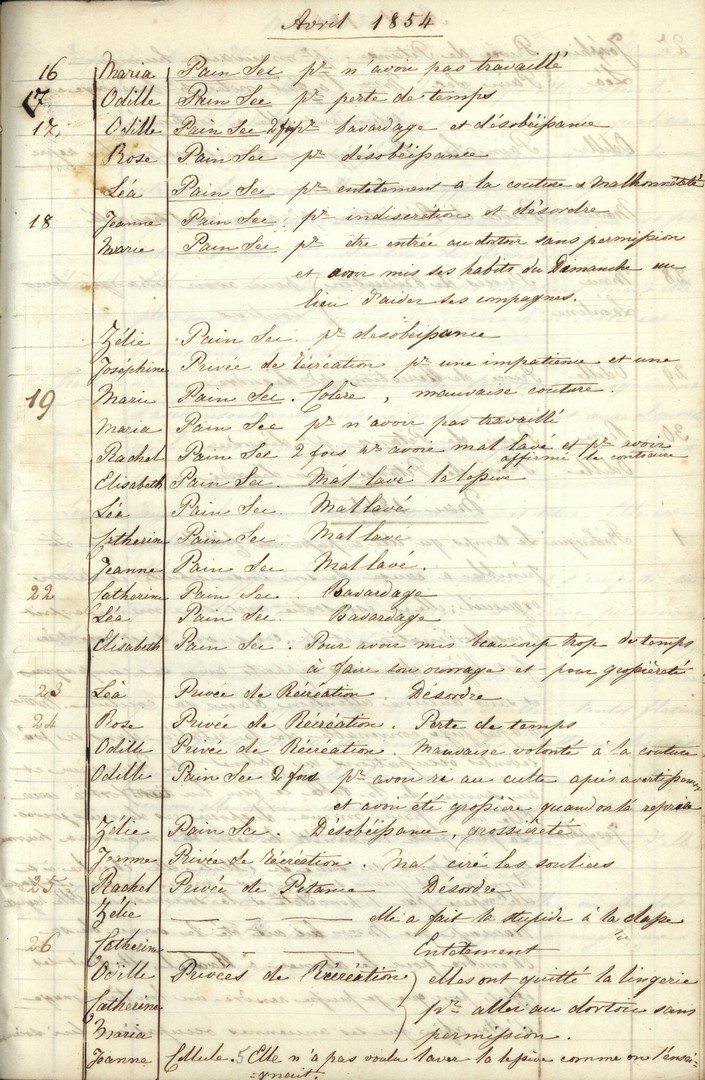 Avril 1854
16 Maria Pain Sec pr n'avoir pas travaillé
17 Odille Pain Sec pr perte de temps
17. Odille Pain Sec 2 fois pr bavardage et désobéissance
Rose Pain Sec pr désobéissance
Léa Pain Sec pr entêtement a la couture & malhonnêteté
18 Jeanne Pain Sec pr indiscrétion et désordre
Marie Pain Sec pr être entrée au dortoir sans permission
et avoir mis ses habits du Dimanche au
lieu d'aider ses compagnes.
Zélie Pain Sec. pr désobéissance
Joséphine Privée de récréation pr une impatience et une
19 Marie Pain Sec. Colère, mauvaise couture.
Maria Pain Sec pr n'avoir pas travaillé
Rachel Pain Sec 2 fois pr avoir mal lavé et pr avoir
affirmé le contraire
Elisabeth Pain Sec. Mal lavé la lessive
Léa Pain Sec. Mal lavé
Catherine Pain Sec Mal lavé
Jeanne Pain Sec Mal lavé.
22 Catherine Pain Sec. Bavardage
Léa Pain Sec. Bavardage
Elisabeth Pain Sec. Pour avoir mis beaucoup trop de temps
à faire son ouvrage et pour grossièreté
23 Léa Privée de Récréation. Désordre
24 Rose Privée de Récréation. Perte de temps
Odille Privée de Récréation. Mauvaise volonté à la couture
Odille Pain Sec 2 fois pr avoir ri au culte après
et avoir été grossière quand on l'a reprise
Zélie Pain Sec. Désobéissance, grossièreté
Jeanne Privée de récréation. Mal ciré les souliers
25 Rachel Privée de Pitance Désordre
Zélie — — — elle a fait la stupide à la classe
26 Catherine — — — Entêtement
Odille Privées de Récréation) elles ont quitté la lingerie
Catherine pr aller au dortoir sans
Maria permission.
Jeanne Cellule. 5 Elle n'a pas voulu laver la lessive comme on l'ensei-
=gneut.